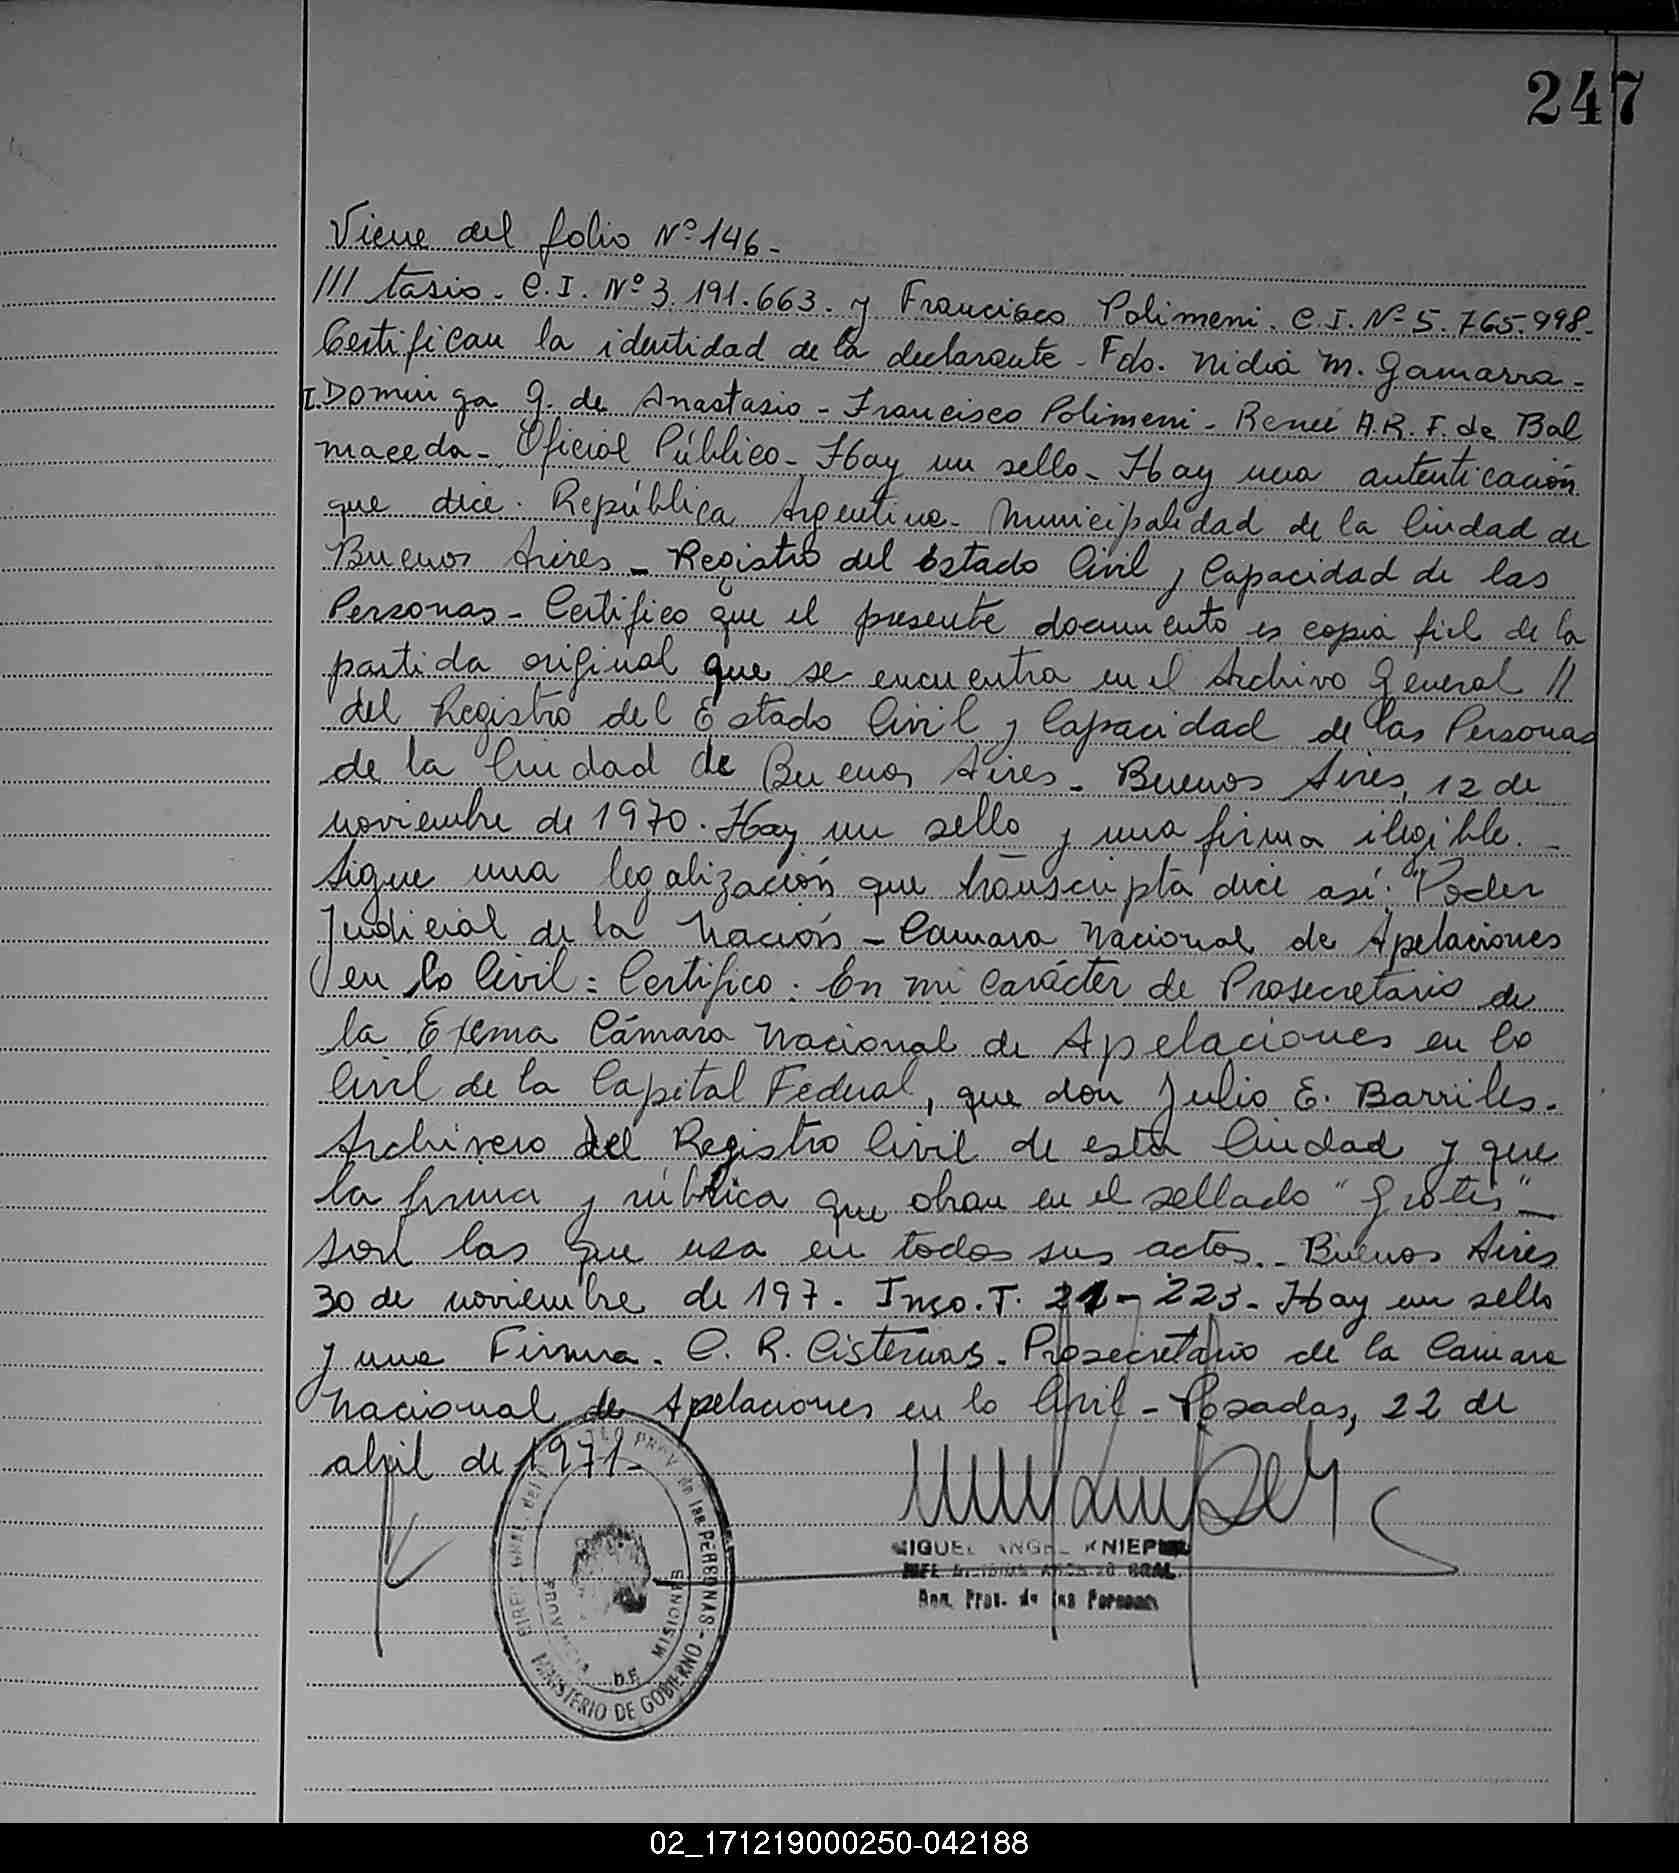 247
Viene del folio Nº 146.-
/// tasio. C.I. Nº 3.191.663. y Francisco Polimeni. C.I. Nº 5.765.998.-
Certifican la identidad de la declarante - Fdo. Nidia M. Gamarra -
I. Dominga G. de Anastasio - Francisco Polimeni - Reneé A.R.F. de Bal
maceda - Oficial Público - Hay un sello - Hay una autenticación
que dice: República Argentina - Municipalidad de la Ciudad de
Buenos Aires - Registro del Estado Civil y Capacidad de las
Personas - Certifico que el presente documento es copia fiel de la
partida original que se encuentra en el Archivo General //
del Registro del Estado Civil y Capacidad de las Personas
de la Ciudad de Buenos Aires - Buenos Aires, 12 de
noviembre de 1970. Hay un sello y una firma ilegible. -
Sigue una legalización que transcripta dice así: "Poder
Judicial de la Nación - Camara Nacional de Apelaciones
en lo Civil = Certifico: En mi carácter de Prosecretario de
la Exema Cámara Nacional de Apelaciones en lo
Civil de la Capital Federal, que don Julio E. Barriles.
Archivero del Registro Civil de esta Ciudad y que
la firma y rúbrica que obran en el sellado "Gratis" -
son las que usa en todos sus actos.. Buenos Aires
30 de noviembre de 197. Inso. T. 21 - 223 - Hay un sello
y una Firma. C. R. Cisternas. Prosecretario de la Camara
Nacional de Apelaciones en lo Civil - Posadas, 22 de
abril de 1971 -
MIGUEL ANGEL KNIEP
GRAL
Prov. de las Personas
PROV. de las PERSONAS - MINISTERIO DE GOBIERNO
PROVINCIA DE MISIONES
02_171219000250-042188